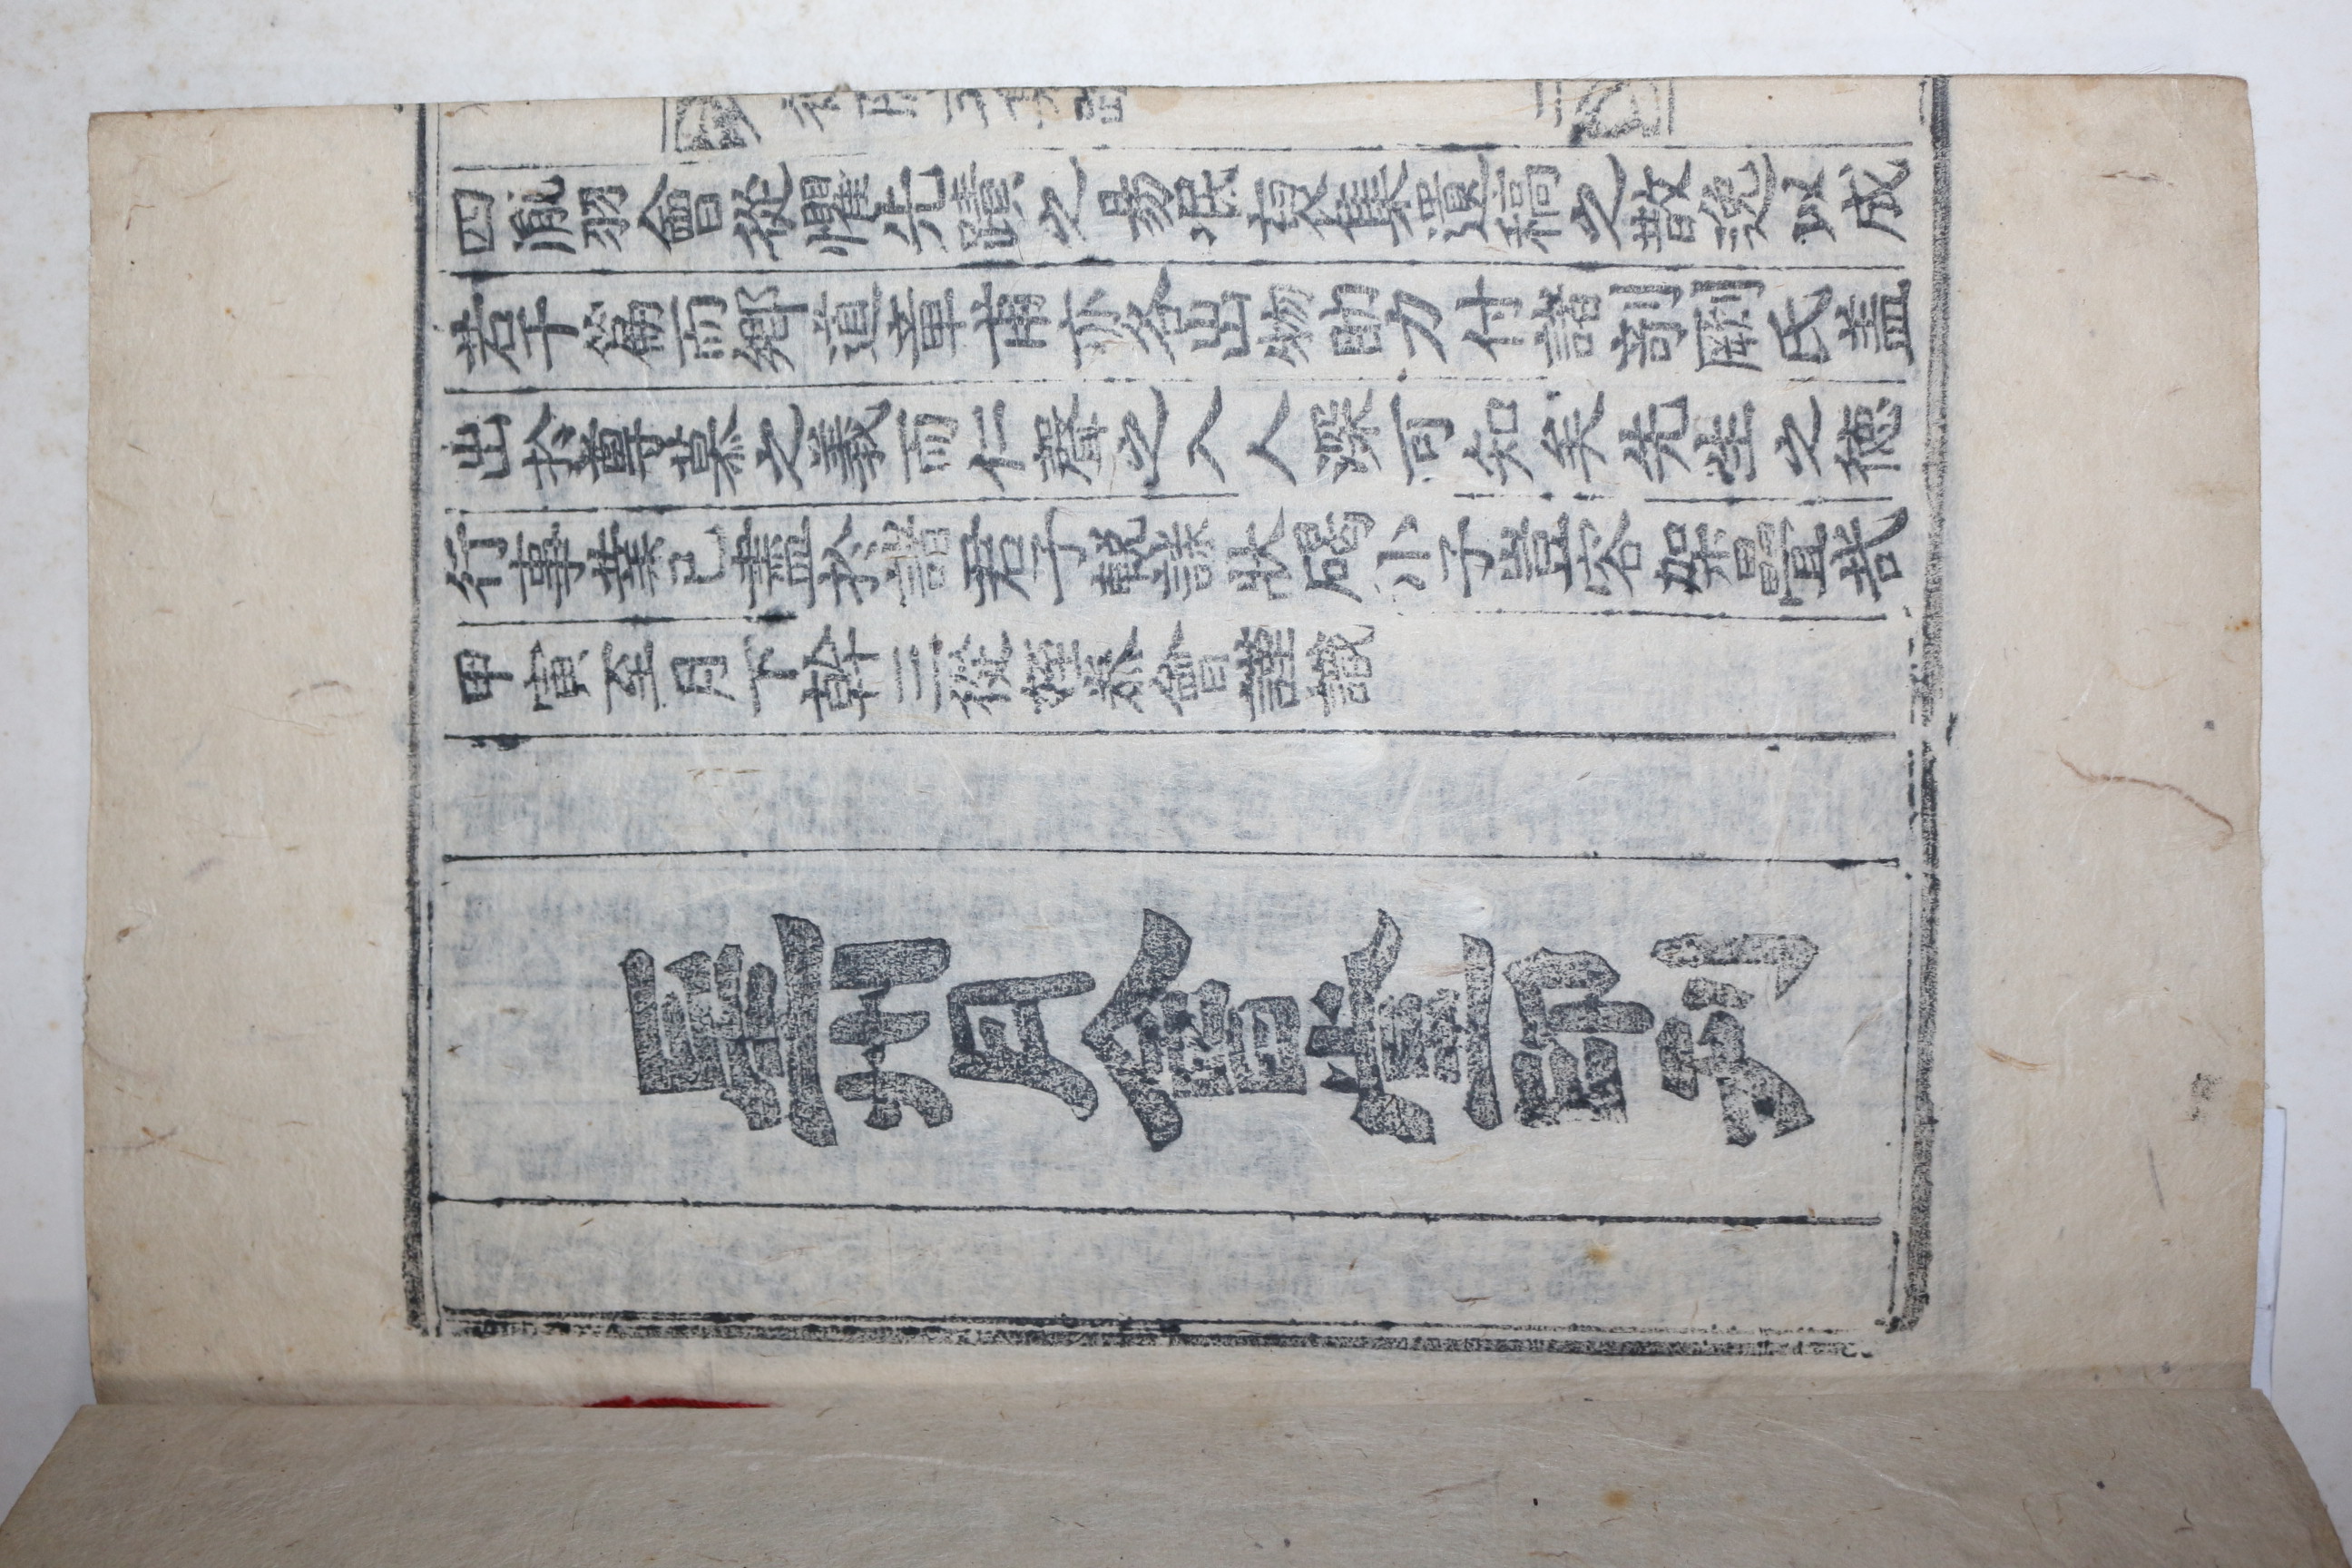 四胤羽會從懼先蹟之易泯裒集遺稿之散逸以成
若干篇而鄉道章甫亦各出物助力付諸剞劂氏盖
出於尊慕之義而仁聲之入人深可知矣先生之徳
行事業已盡於諸君子輓誄狀碣小子豈容架疊哉
甲寅至月下幹三從姪泰會謹識
星州月會堂印刊
三